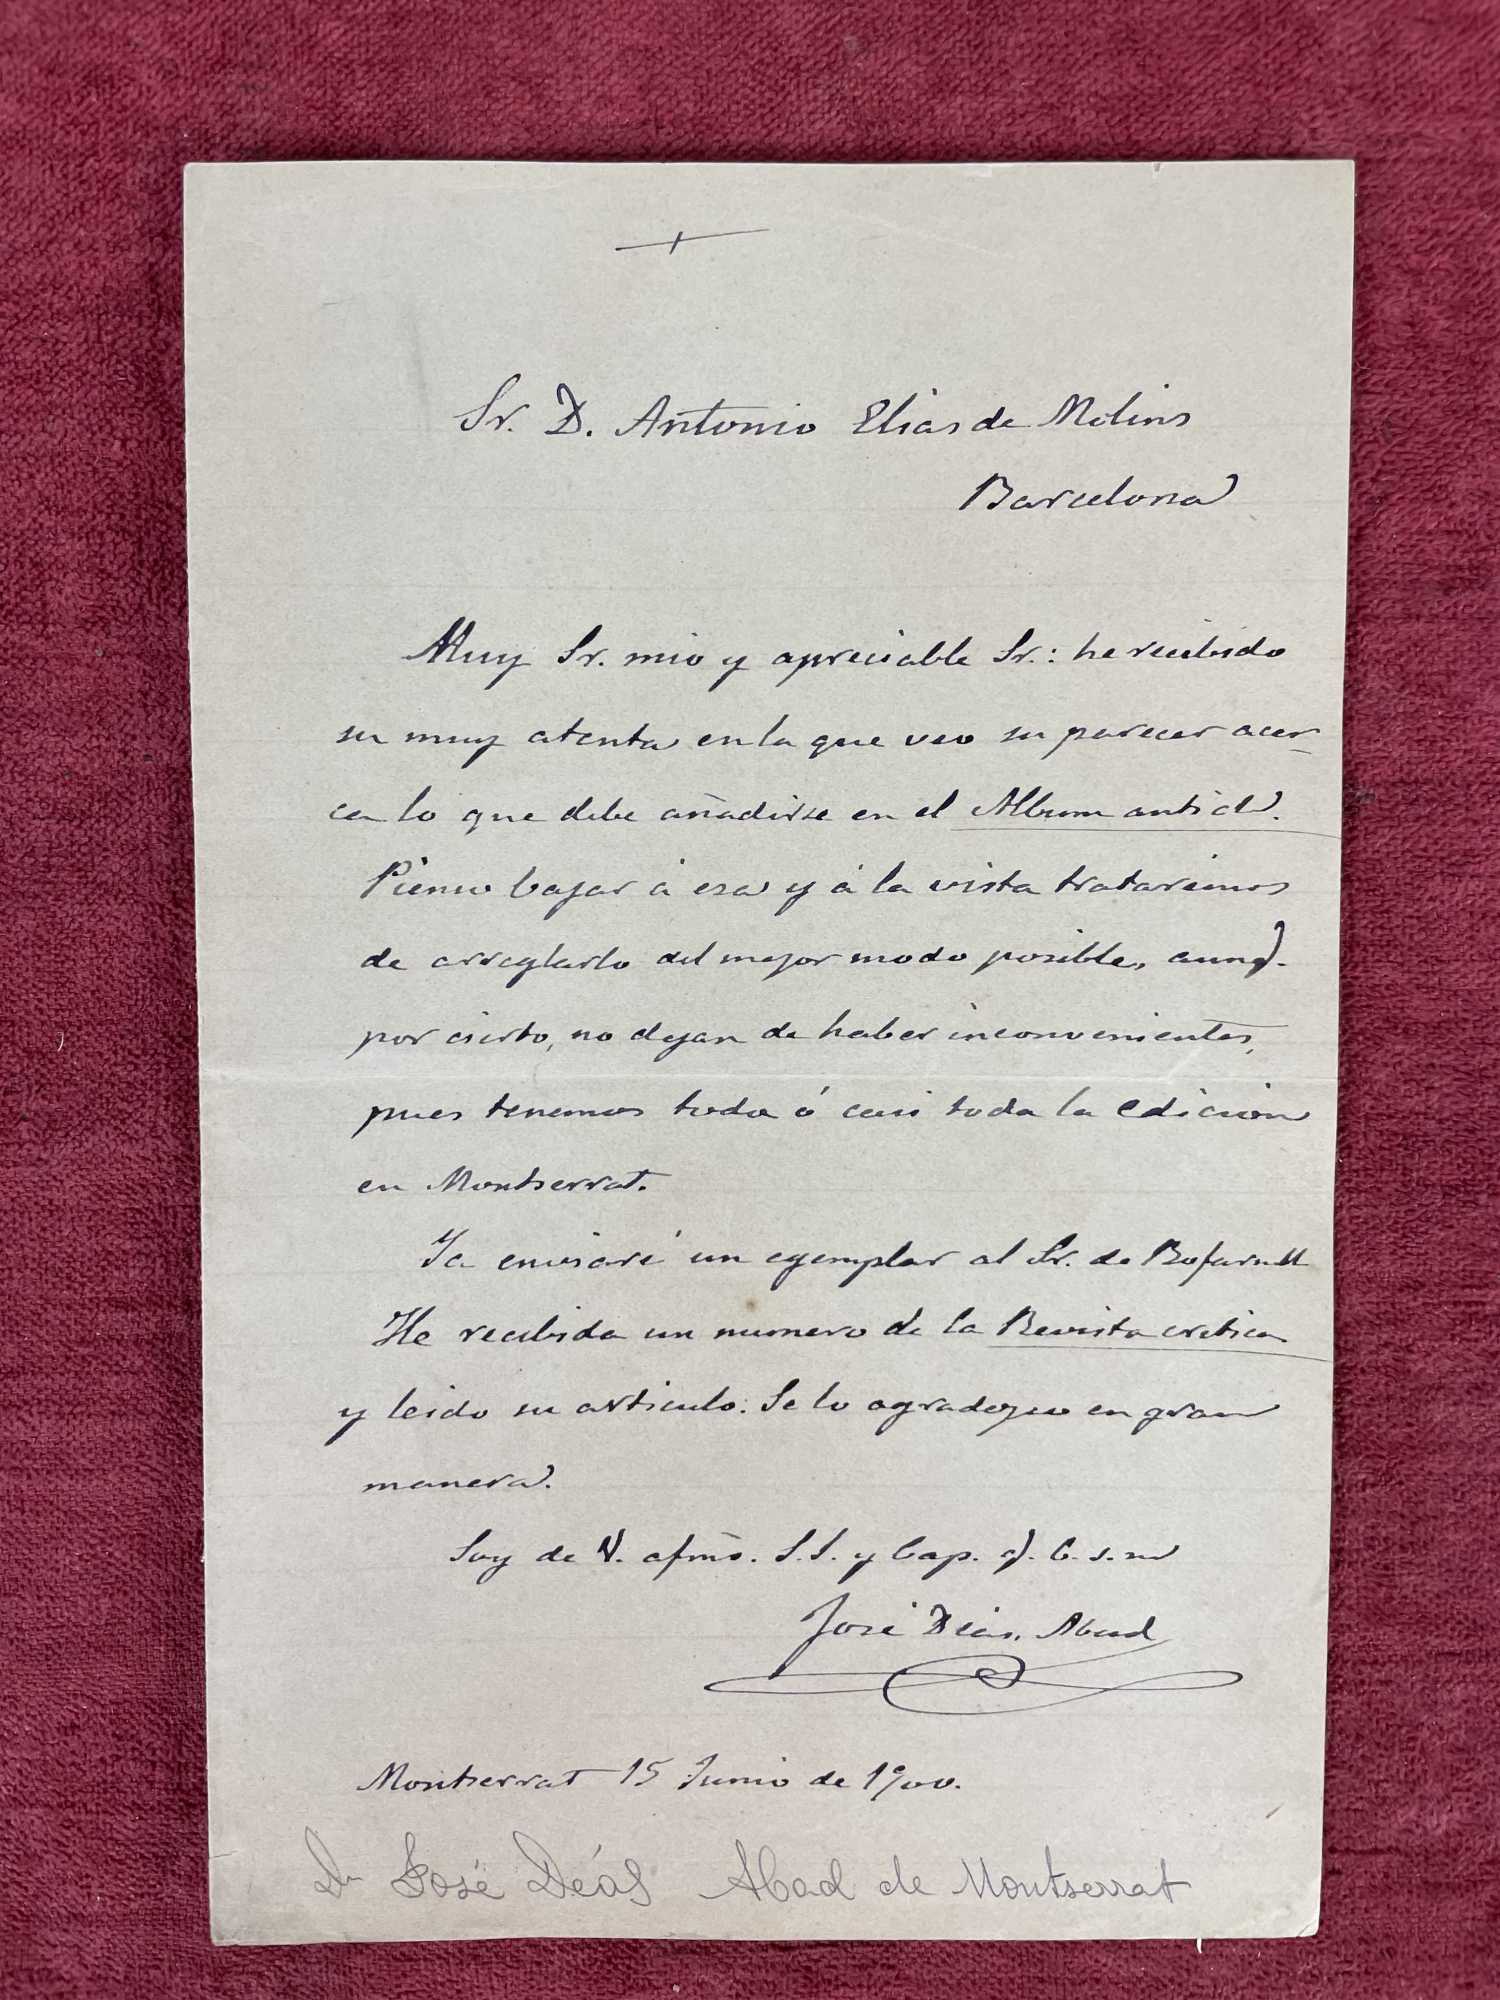 Sr. D. Antonio Elias de Molins
Barcelona
Muy Sr. mio y apreciable Sr.: he recibido
su muy atenta en la que veo su parecer acer-
ca lo que debe añadirse en el Album
Pienso bajar á esa y á la vista trataremos
de arreglarlo del mejor modo posible, aunq.
por cierto, no dejan de haber inconvenientes,
pues tenemos toda ó casi toda la edicion
en Montserrat.
Ya enviaré un ejemplar al Sr. de Bofarull
He recibido un numero de la Revista critica
y leido su articulo. Se lo agradezco en gran
manera.
Soy de V. afmo. S.S. y Cap. q. b. s. m
José Deás, Abad
Montserrat 15 Junio de 1900.
Dn José Deás Abad de Montserrat